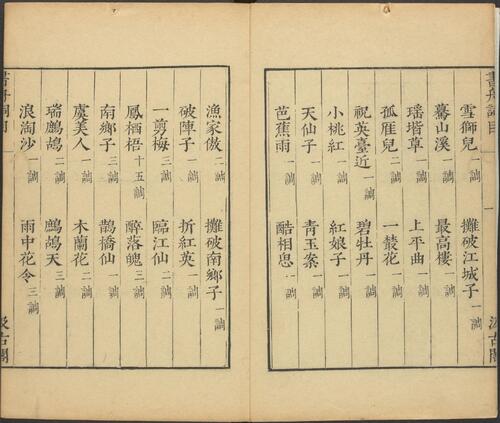 書舟詞目
雪獅兒 一調 攤破江城子 一調
驀山溪 一調 最高樓 一調
瑶堦草 一調 上平曲 一調
孤雁兒 二調 一叢花 一調
祝英臺近 一調 碧牡丹 一調
小桃紅 一調 紅娘子 一調
天仙子 一調 青玉案 一調
芭蕉雨 一調 酷相思 一調
漁家傲 二調 攤破南鄉子 一調
破陣子 一調 折紅英 一調
一剪梅 三調 臨江仙 一調
鳳栖梧 十五調 醉落魄 三調
南鄉子 三調 鵲橋仙 一調
虞美人 一調 木蘭花 二調
瑞鷓鴣 二調 鷓鴣天 三調
浪淘沙 一調 雨中花令 三調